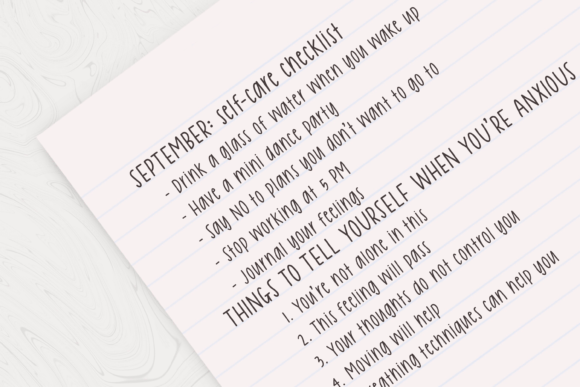 SEPTEMBER: self-care checklist
- Drink a glass of water when you wake up
- Have a mini dance party
- Say NO to plans you don't want to go to
- Stop working at 5 PM
- Journal your feelings
THINGS TO TELL YOURSELF WHEN YOU'RE ANXIOUS
1. You're not alone in this
2. This feeling will pass
3. Your thoughts do not control you
4. Moving will help
techniques can help you